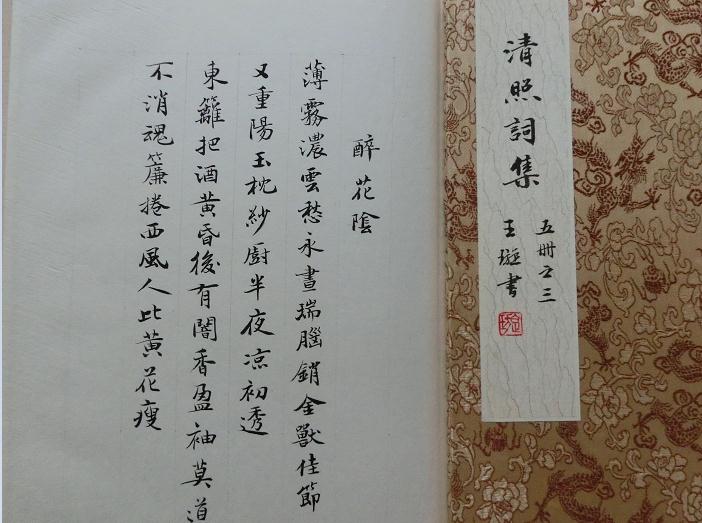 醉花陰
薄霧濃雲愁永晝瑞腦銷金獸佳節
又重陽玉枕紗廚半夜凉初透
東籬把酒黃昏後有闇香盈袖莫道
不消魂簾捲西風人比黃花瘦
清照詞集
五冊之三
王璇書